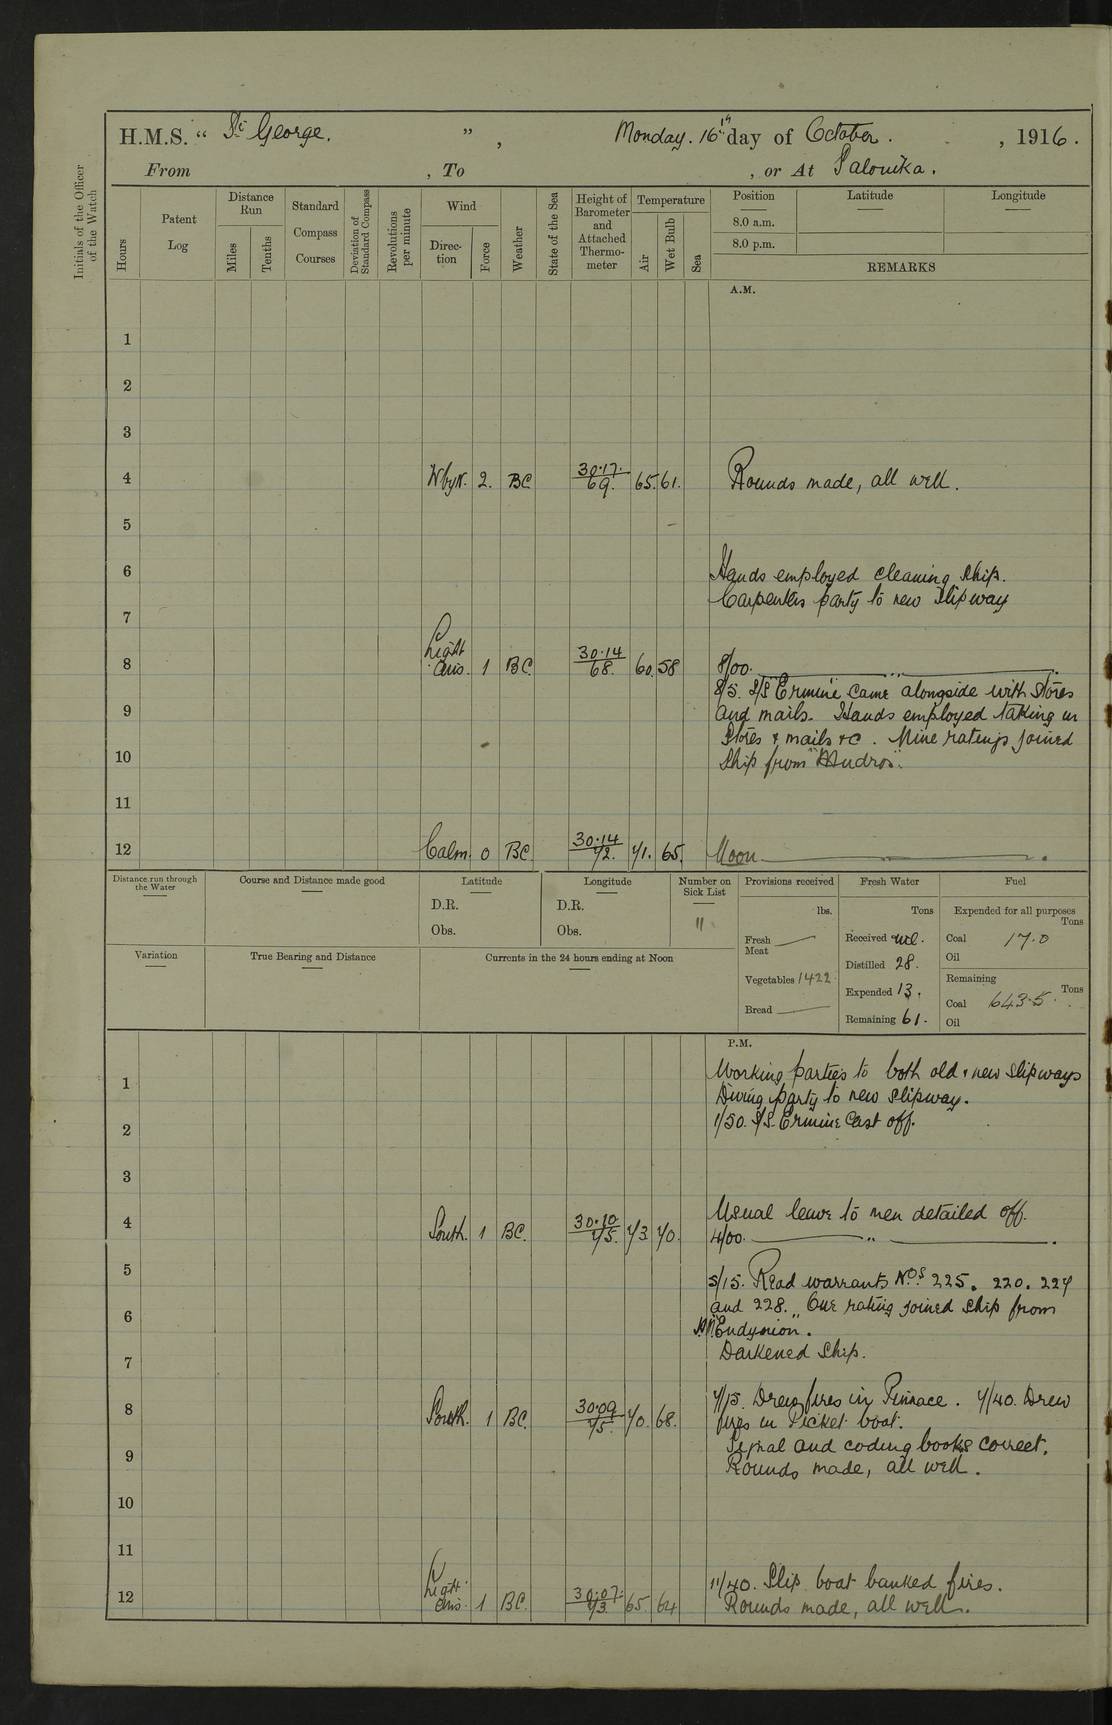 H.M.S. “ St George. ” , Monday. 16th day of October. , 1916.
From , To , or At Salonika.
Initials of the Officer of the Watch
Hours
Patent Log
Distance Run
Miles
Tenths
Standard Compass Courses
Deviation of Standard Compass
Revolutions per minute
Wind
Direction
Force
Weather
State of the Sea
Height of Barometer and Attached Thermometer
Temperature
Air
Wet Bulb
Sea
Position Latitude Longitude
8.0 a.m.
8.0 p.m.
REMARKS
A.M.
1
2
3
4 W by N. 2. BC 30.17. 69. 65. 61. Rounds made, all well.
5
6 Hands employed cleaning Ship.
Carpenters party to new Slipway
7
8 Light airs. 1 BC. 30.14 68. 60. 58 8/00. „
8/5. S/S Ermine came alongside with Stores
9 and mails. Hands employed taking in
Stores & mails &c. Nine ratings joined
10 Ship from "Mudros".
11
12 Calm. 0 BC. 30.14 72. 71. 65. Noon
Distance run through the Water
Course and Distance made good
Latitude
D.R.
Obs.
Longitude
D.R.
Obs.
Number on Sick List
11
Provisions received
lbs.
Fresh Meat
Vegetables 1422
Bread
Fresh Water
Tons
Received nil.
Distilled 28.
Expended 13.
Remaining 61.
Fuel
Expended for all purposes
Tons
Coal 17.0
Oil
Remaining
Tons
Coal 643.5.
Oil
Variation
True Bearing and Distance
Currents in the 24 hours ending at Noon
P.M.
1 Working parties to both old & new Slipways
Diving party to new Slipway.
2 1/50. S/S. Ermine Cast off.
3
4 Usual leave to men detailed off.
South. 1 BC. 30.10 75. 73 70. 4/00. „
5 5/15. Read warrants Nos. 225. 220. 227
6 and 228. One rating joined Ship from
"Endymion".
7 Darkened Ship.
8 South. 1 BC. 30.09 75. 70. 68. 7/15. Drew fires in Pinnace. 7/40. Drew
fires in Picket boat.
Signal and coding books correct.
9 Rounds made, all well.
10
11
12 Light airs. 1 BC. 30.07. 73. 65. 64 11/40. Slip boat banked fires.
Rounds made, all well.